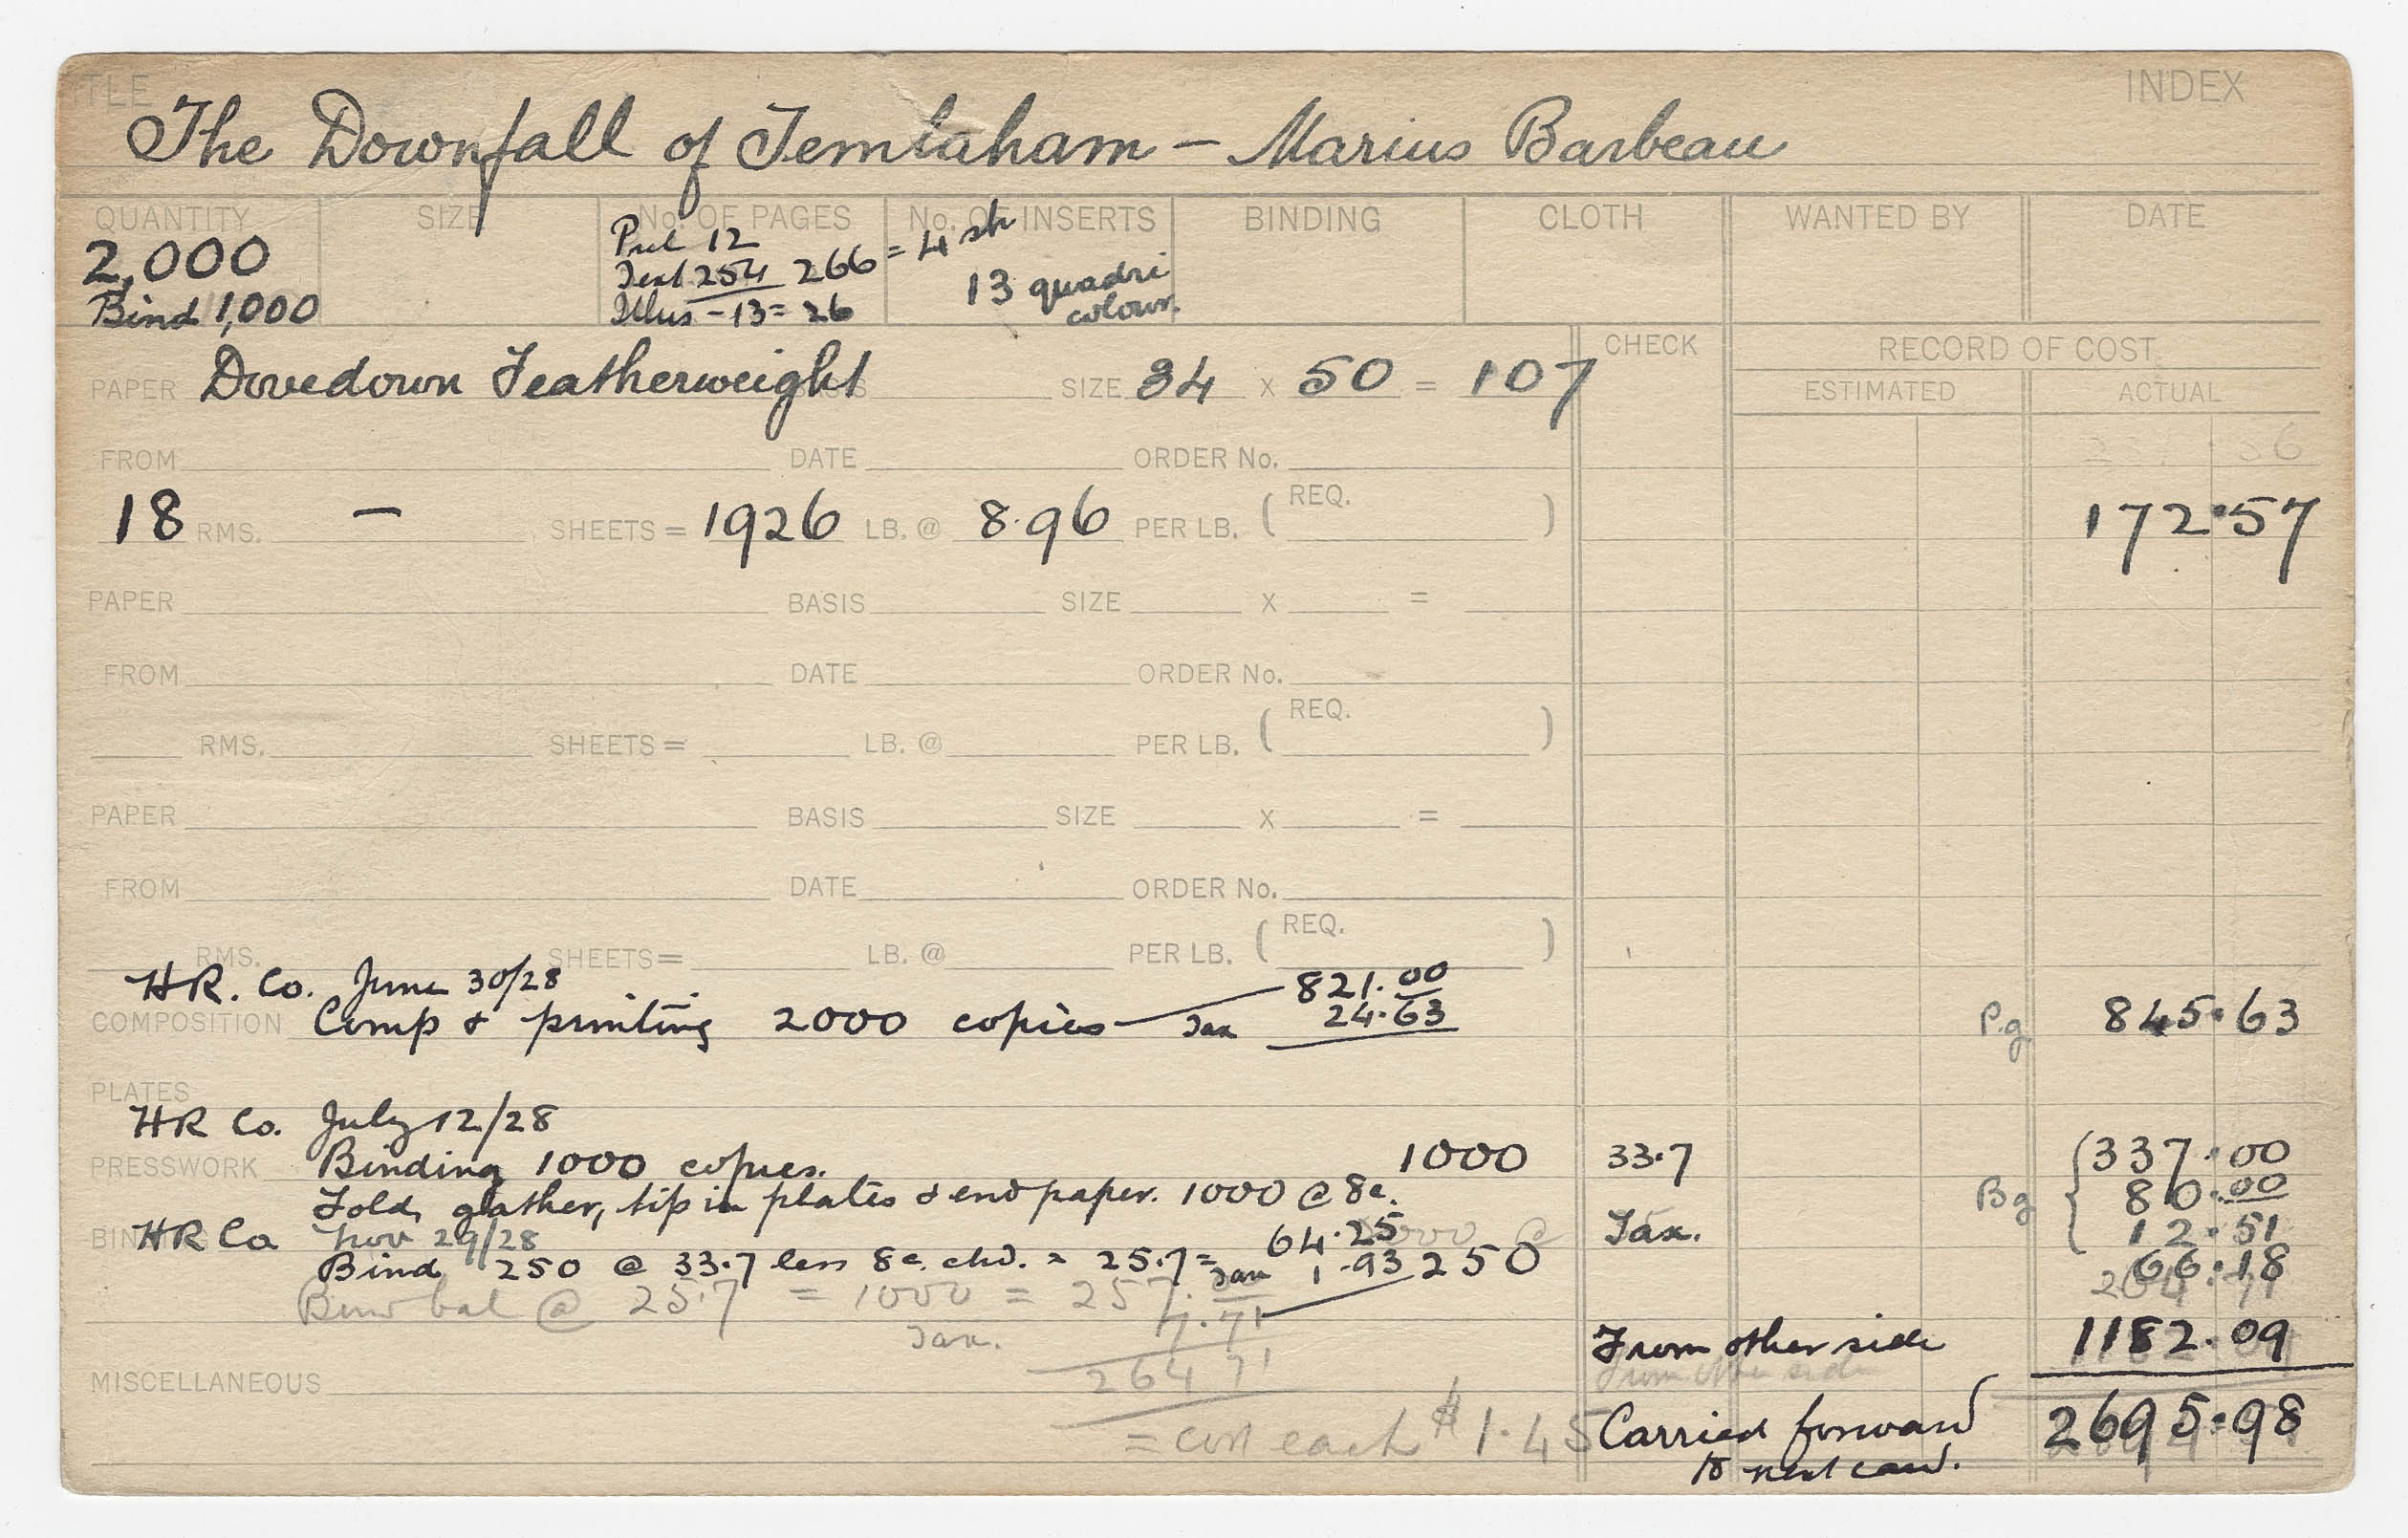 TLE INDEX
The Downfall of Temlaham – Marius Barbeau
QUANTITY SIZE No. OF PAGES No. OF INSERTS BINDING CLOTH WANTED BY DATE
2,000
Bind 1,000
Prel 12
Text 254 266 = 4 sh
Illus – 13 = 26
13 quadri
colour.
CHECK RECORD OF COST
ESTIMATED ACTUAL
PAPER Dovedown Featherweight SIZE 34 X 50 = 107
FROM DATE ORDER No.
18 RMS. – SHEETS = 1926 LB. @ 8.96 PER LB. ( REQ. ) 172.57
PAPER BASIS SIZE X =
FROM DATE ORDER No.
RMS. SHEETS = LB. @ PER LB. ( REQ. )
PAPER BASIS SIZE X =
FROM DATE ORDER No.
RMS. SHEETS = LB. @ PER LB. ( REQ. )
HR. Co. June 30/28 821.00
COMPOSITION Comp & printing 2000 copies Tax 24.63 P.g 845.63
PLATES
HR Co. July 12/28
PRESSWORK Binding 1000 copies. 1000 33.7 337.00
Fold, gather, tip in plates & end paper. 1000 @ 8c. Bg 80.00
HR Co Nov 29/28 64.25 Tax. 12.51
Bind 250 @ 33.7 less 8c. chd. = 25.7 = Tax 1.93 250 66.18
Bind bal @ 25.7 = 1000 = 257. 264.71
Tax. 7.71
From other side 1182.09
264 71
From other side
MISCELLANEOUS
= cost each $1.45 Carried forward 2695.98
to next card.